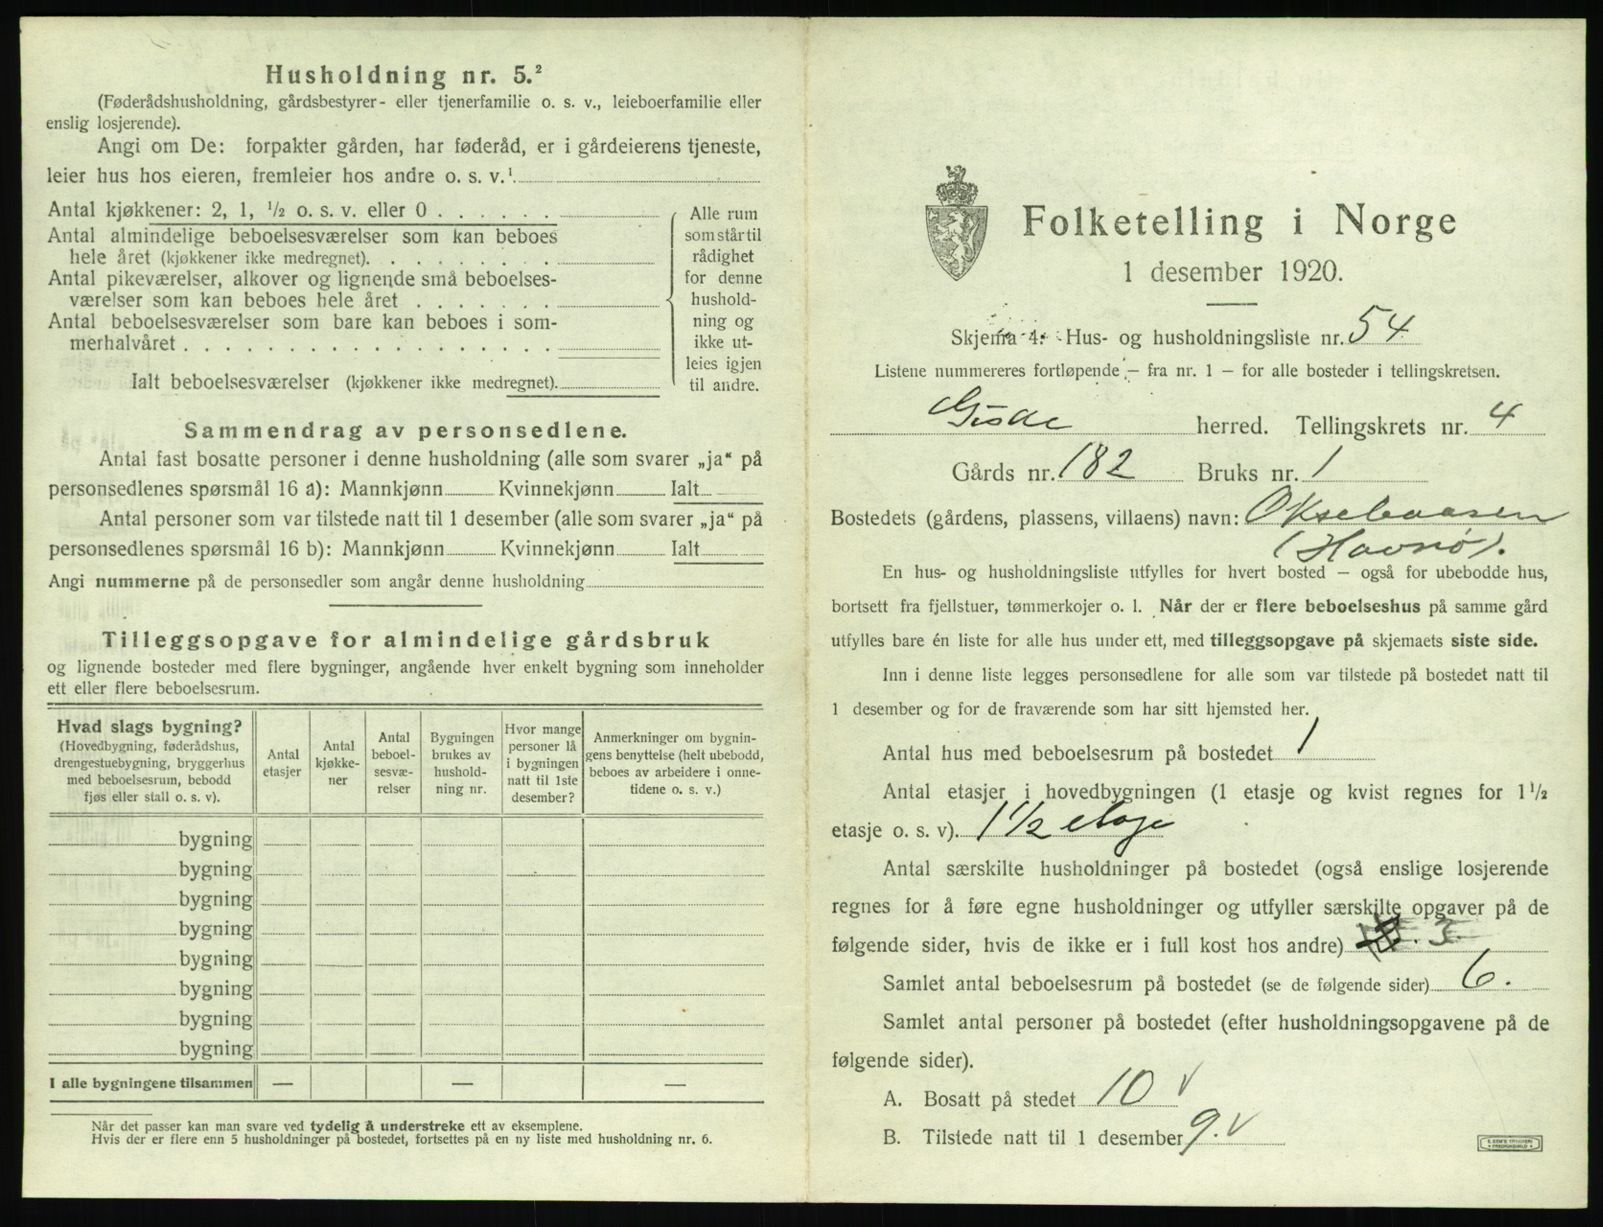 Husholdning nr. 5.²
(Føderådshusholdning, gårdsbestyrer- eller tjenerfamilie o. s. v., leieboerfamilie eller
enslig losjerende).
Angi om De: forpakter gården, har føderåd, er i gårdeierens tjeneste,
leier hus hos eieren, fremleier hos andre o. s. v.¹
Antal kjøkkener: 2, 1, ½ o. s. v. eller 0
Antal almindelige beboelsesværelser som kan beboes
hele året (kjøkkener ikke medregnet).
Antal pikeværelser, alkover og lignende små beboelses-
værelser som kan beboes hele året
Antal beboelsesværelser som bare kan beboes i som-
merhalvåret
Ialt beboelsesværelser (kjøkkener ikke medregnet).
Alle rum
som står til
rådighet
for denne
hushold-
ning og
ikke ut-
leies igjen
til andre.
Sammendrag av personsedlene.
Antal fast bosatte personer i denne husholdning (alle som svarer „ja“ på
personsedlenes spørsmål 16 a): Mannkjønn Kvinnekjønn Ialt
Antal personer som var tilstede natt til 1 desember (alle som svarer „ja“ på
personsedlenes spørsmål 16 b): Mannkjønn Kvinnekjønn Ialt
Angi nummerne på de personsedler som angår denne husholdning
Tilleggsopgave for almindelige gårdsbruk
og lignende bosteder med flere bygninger, angående hver enkelt bygning som inneholder
ett eller flere beboelsesrum.
Hvad slags bygning?
(Hovedbygning, føderådshus,
drengestuebygning, bryggerhus
med beboelsesrum, bebodd
fjøs eller stall o. s. v).
Antal
etasjer
Antal
kjøkke-
ner
Antal
beboel-
sesvæ-
relser
Bygningen
brukes av
hushold-
ning nr.
Hvor mange
personer lå
i bygningen
natt til 1ste
desember?
Anmerkninger om bygnin-
gens benyttelse (helt ubebodd,
beboes av arbeidere i onne-
tidene o. s. v.)
bygning
bygning
bygning
bygning
bygning
bygning
bygning
bygning
I alle bygningene tilsammen — — —
Når det passer kan man svare ved tydelig å understreke ett av eksemplene.
Hvis der er flere enn 5 husholdninger på bostedet, fortsettes på en ny liste med husholdning nr. 6.
Folketelling i Norge
1 desember 1920.
Skjema 4. Hus- og husholdningsliste nr. 54
Listene nummereres fortløpende — fra nr. 1 — for alle bosteder i tellingskretsen.
Giske herred. Tellingskrets nr. 4
Gårds nr. 182 Bruks nr. 1
Bostedets (gårdens, plassens, villaens) navn: Oksebaasen
(Havnø).
En hus- og husholdningsliste utfylles for hvert bosted — også for ubebodde hus,
bortsett fra fjellstuer, tømmerkojer o. l. Når der er flere beboelseshus på samme gård
utfylles bare én liste for alle hus under ett, med tilleggsopgave på skjemaets siste side.
Inn i denne liste legges personsedlene for alle som var tilstede på bostedet natt til
1 desember og for de fraværende som har sitt hjemsted her.
Antal hus med beboelsesrum på bostedet 1
Antal etasjer i hovedbygningen (1 etasje og kvist regnes for 1½
etasje o. s. v). 1 ½ etage
Antal særskilte husholdninger på bostedet (også enslige losjerende
regnes for å føre egne husholdninger og utfyller særskilte opgaver på de
følgende sider, hvis de ikke er i full kost hos andre) 3.
Samlet antal beboelsesrum på bostedet (se de følgende sider) 6.
Samlet antal personer på bostedet (efter husholdningsopgavene på de
følgende sider).
A. Bosatt på stedet 10 v
B. Tilstede natt til 1 desember 9. v